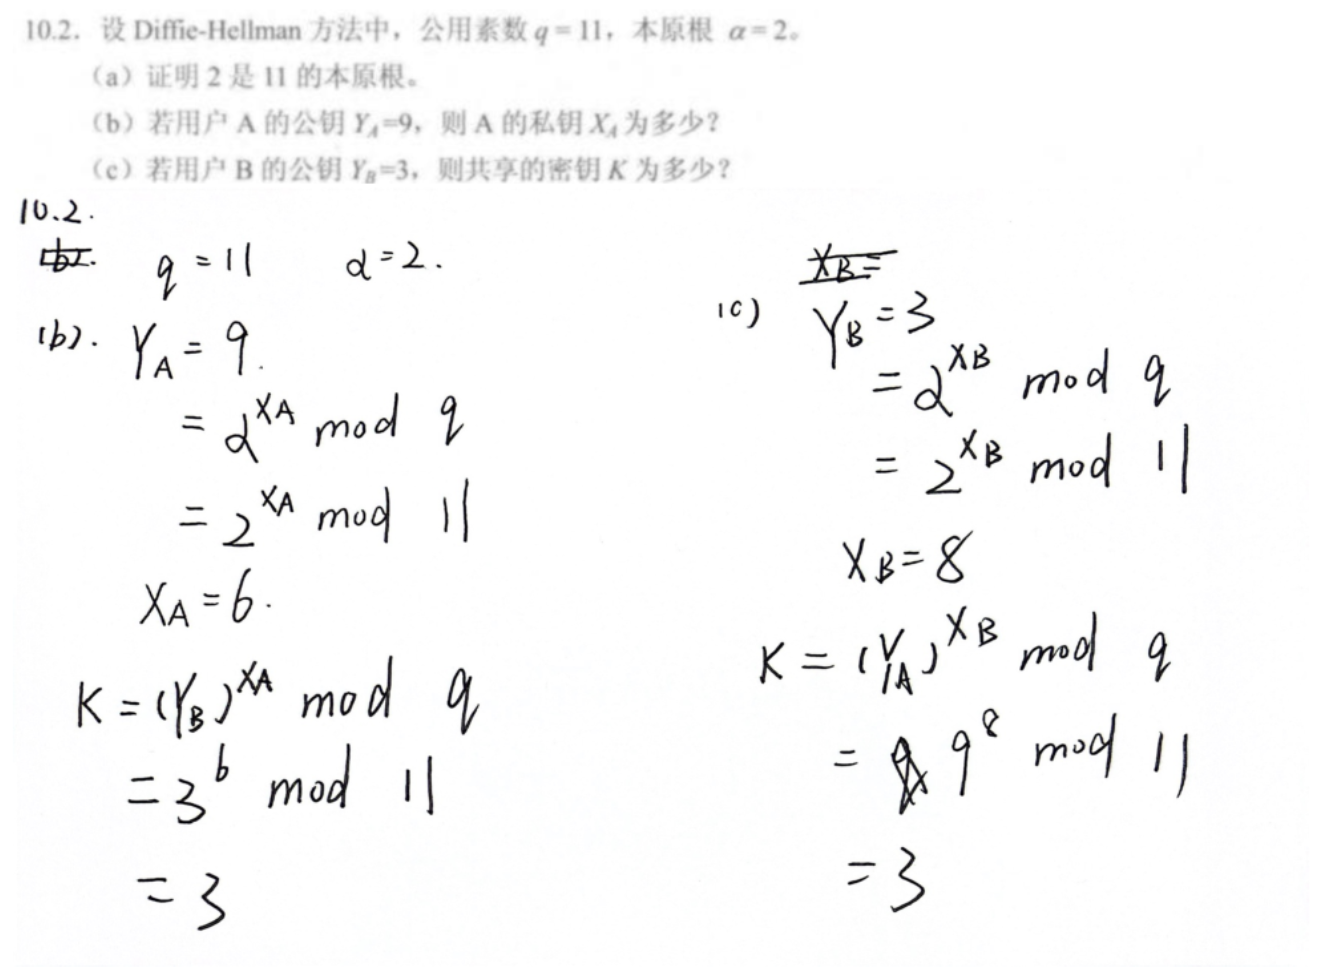 10.2. 设 Diffie-Hellman 方法中，公用素数 q = 11，本原根 α = 2。
（a）证明 2 是 11 的本原根。
（b）若用户 A 的公钥 Y_A=9，则 A 的私钥 X_A 为多少？
（c）若用户 B 的公钥 Y_B=3，则共享的密钥 K 为多少？
10.2.
q = 11 α = 2.
(b). Y_A = 9.
= α^{X_A} mod q
= 2^{X_A} mod 11
X_A = 6.
K = (Y_B)^{X_A} mod q
= 3^6 mod 11
= 3
X_B =
(c) Y_B = 3
= α^{X_B} mod q
= 2^{X_B} mod 11
X_B = 8
K = (Y_A)^{X_B} mod q
= 9^8 mod 11
= 3